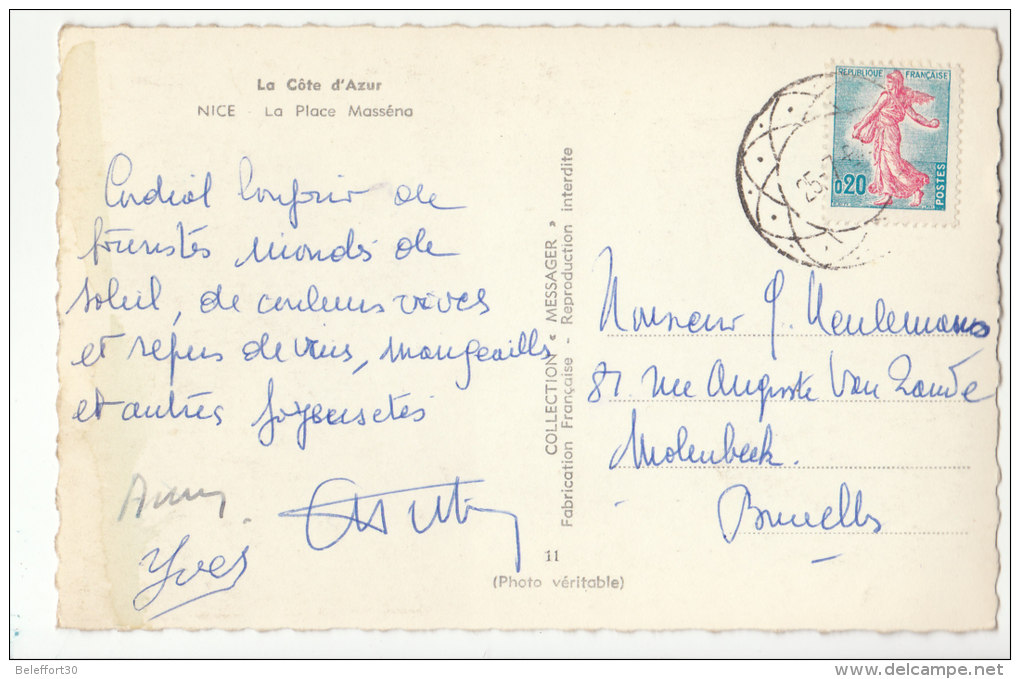 La Côte d'Azur
NICE - La Place Masséna
Cordial bonjour de
touristes inondés de
soleil, de couleurs vives
et repus de vins, mangeailles
et autres joyeusetés
Anny
Yves
COLLECTION « MESSAGER »
Fabrication Française - Reproduction interdite
11
(Photo véritable)
REPUBLIQUE FRANÇAISE
0,20
POSTES
25-7
Monsieur G. Meulemans
81 rue Auguste Van Zande
Molenbeek.
Bruxelles
Beleffort30
www.delcampe.net